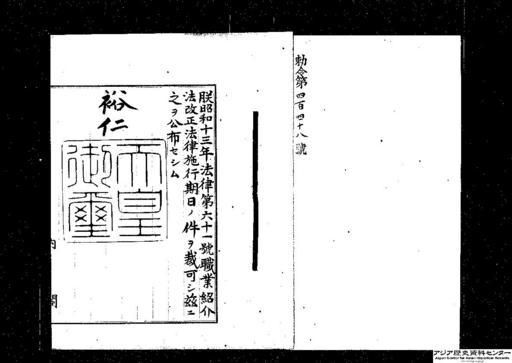 勅令第四百四十八號
朕昭和十三年法律第六十一號職業紹介
法改正法律施行期日ノ件ヲ裁可シ茲ニ
之ヲ公布セシム
裕仁
天皇
御璽
内閣
アジア歴史資料センター
Japan Center for Asian Historical Records